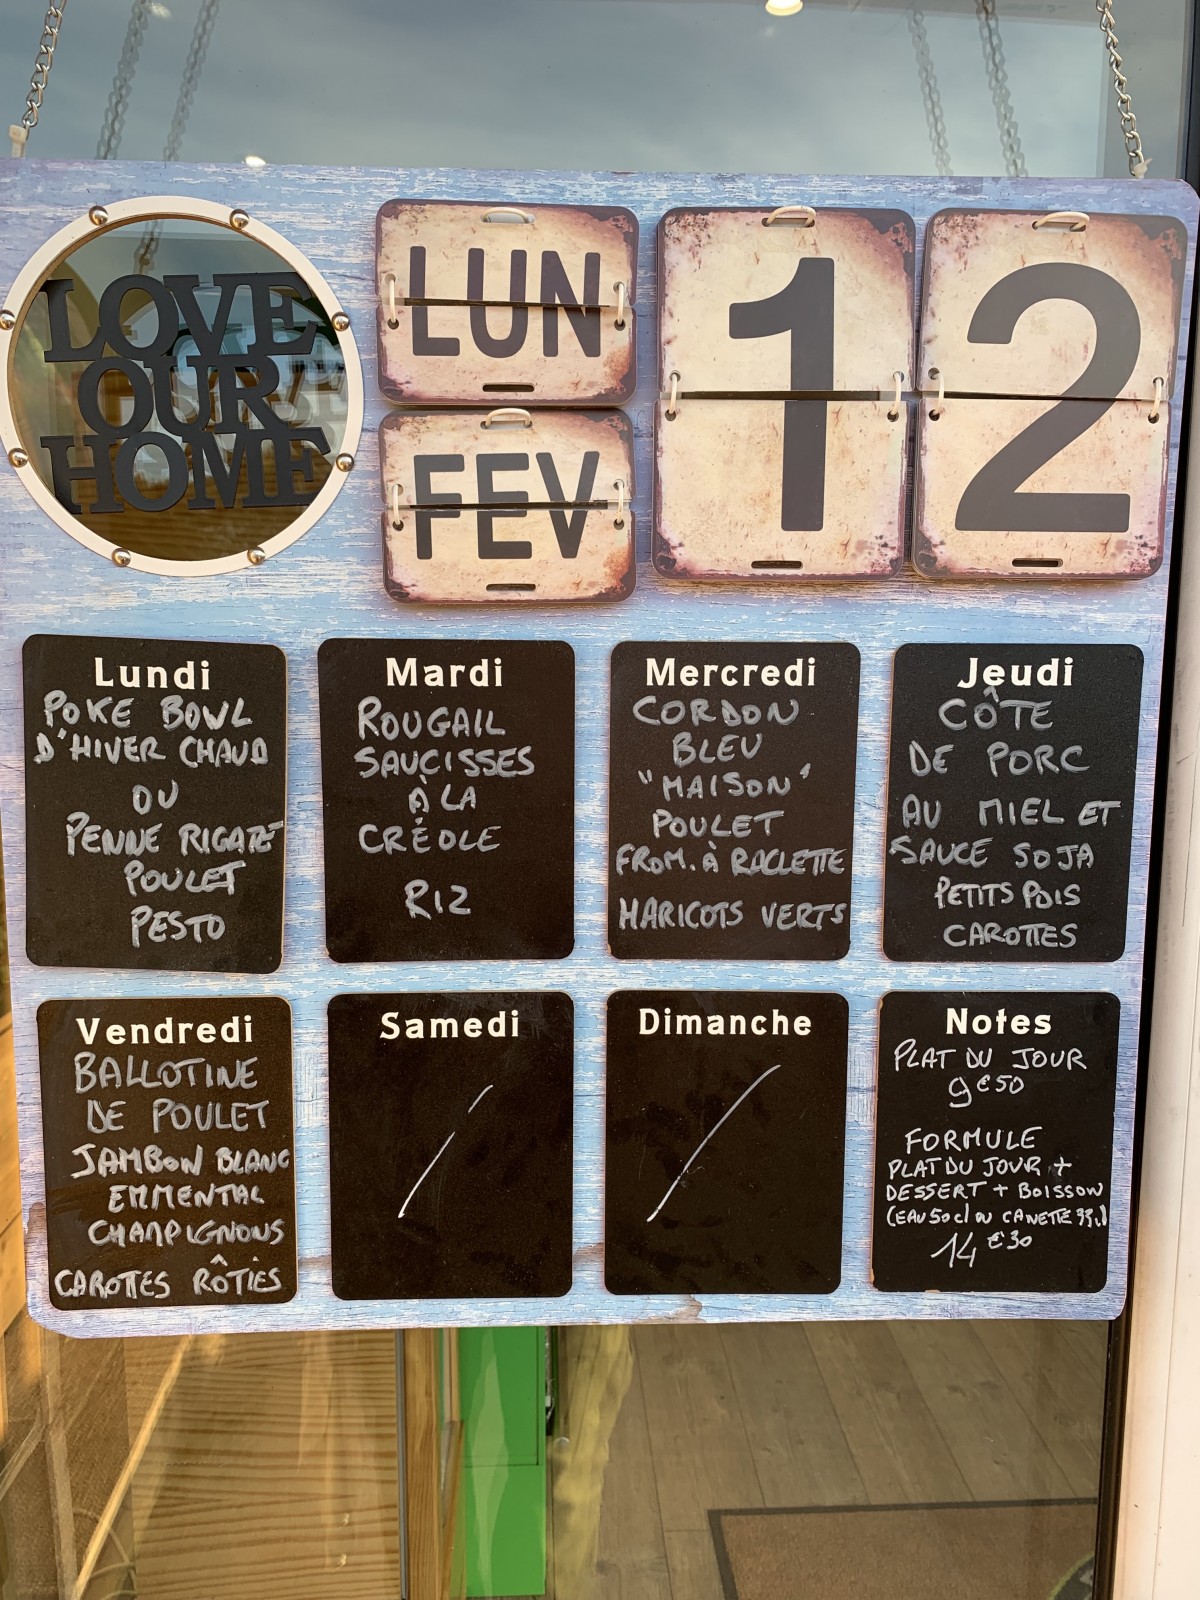 LOVE
OUR
HOME
LUN
FEV
12
Lundi
POKE BOWL
D'HIVER CHAUD
OU
PENNE RIGATE
POULET
PESTO
Mardi
ROUGAIL
SAUCISSES
À LA
CRÉOLE
RIZ
Mercredi
CORDON
BLEU
"MAISON"
POULET
FROM. À RACLETTE
HARICOTS VERTS
Jeudi
CÔTE
DE PORC
AU MIEL ET
SAUCE SOJA
PETITS POIS
CAROTTES
Vendredi
BALLOTINE
DE POULET
JAMBON BLANC
EMMENTAL
CHAMPIGNONS
CAROTTES RÔTIES
Samedi
/
Dimanche
/
Notes
PLAT DU JOUR
9€50
FORMULE
PLAT DU JOUR +
DESSERT + BOISSON
(EAU 50cl OU CANETTE 33cl)
14€30